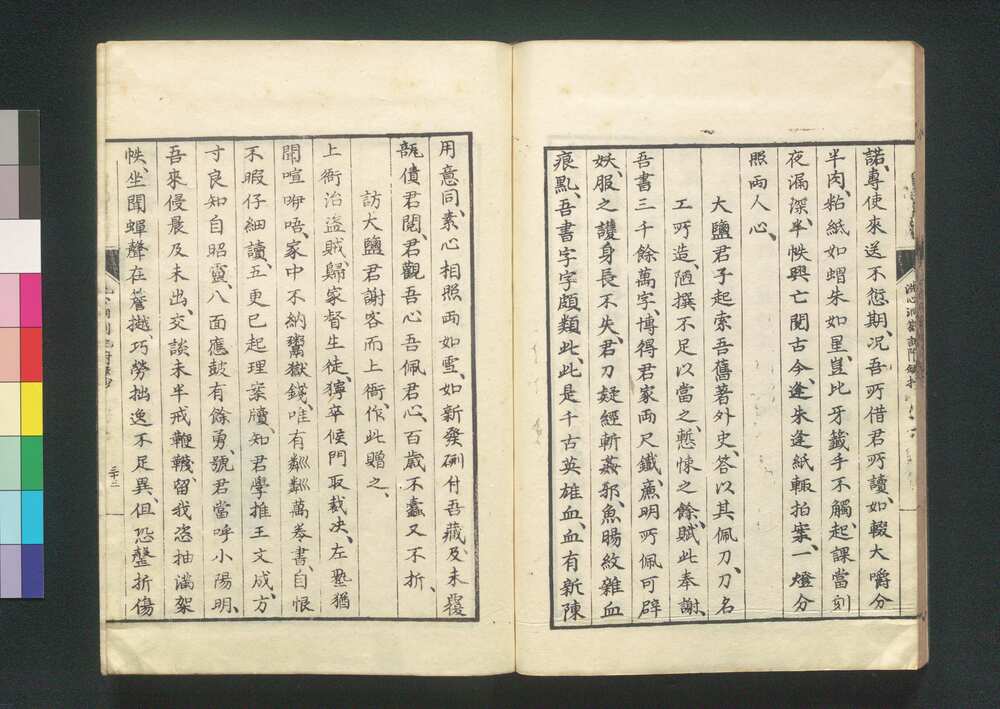 諾、專使來送不愆期、况吾所借君所讀、如輟大嚼分
半肉、粘紙如蝟朱如星、豈比牙籤手不觸、起課當刻
夜漏深、半帙興亡閱古今、逢朱逢紙輒拍案、一燈分
照兩人心、
大鹽君子起索吾舊著外史、答以其佩刀、刀名
工所造、陋撰不足以當之、慙悚之餘、賦此奉謝、
吾書三千餘萬字、博得君家兩尺鐵、廉明所佩可辟
妖、服之護身長不失、君刀疑經斬姦邪、魚腸紋雜血
痕點、吾書字字頗類此、此是千古英雄血、血有新陳
用意同、素心相照兩如雪、如新發硎付吾藏、及未覆
瓿債君閱、君觀吾心吾佩君心、百歲不蠹又不折、
訪大鹽君謝客而上衙、作此贈之、
上衙治盜賊、歸家督生徒、獰卒候門取裁决、左塾猶
聞喧咿唔、家中不納鬻獄錢、唯有粼粼萬卷書、自恨
不暇仔細讀、五更已起理案牘、知君學推王文成、方
寸良知自昭靈、八面應鼓有餘勇、號君當呼小陽明、
吾來侵晨及未出、交談未半戒鞭韈、留我恣抽滿架
帙、坐聞蟬聲在簷樾、巧勞拙逸不足異、但恐盤折傷
三十二